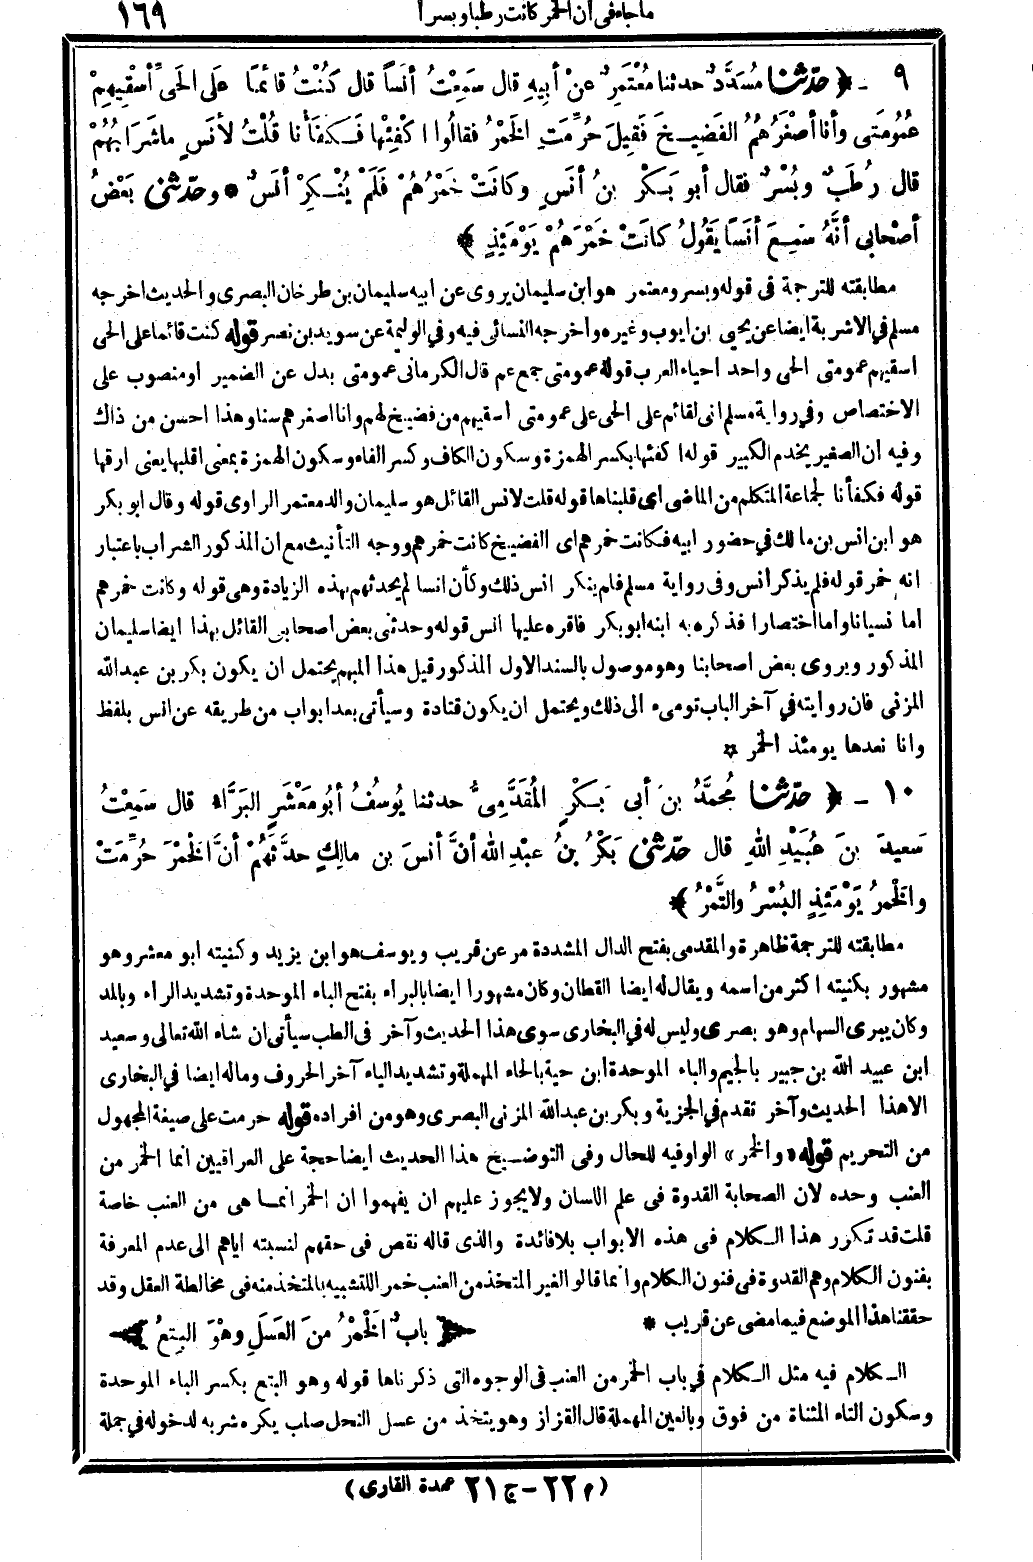 ما جاء في أن الخمر كانت رطبا وبسرا ١٦٩
٩ - ﴿ حَدَّثَنَا مُسَدَّدٌ حدثنا مُعْتَمِرٌ عنْ أبيهِ قال سَمِعْتُ أنَساً قال كُنْتُ قائماً عَلَى الحَىِّ أسْقِيهِمْ
عُمُومَتى وأنا أصْغَرُهُمُ الفَضِيخَ فَقِيلَ حُرِّمَتِ الخَمْرُ فقالُوا اكْفِئْها فَكَفَأْنا قُلْتُ لأنَسٍ ماشَرَابُهُمْ
قال رُطَبٌ وبُسْرٌ فقال أبو بَكْرِ بنُ أنَسٍ وكانَتْ خَمْرُهُمْ فَلَمْ يُنْكِرْ أنَسٌ * وحَدَّثَنى بَعْضُ
أصْحابى أنَّهُ سَمِعَ أنَساً يَقُولُ كانَتْ خَمْرَهُمْ يَوْمَئِذٍ ﴾
مطابقته للترجمة فى قوله وبسر ومعتمر هو ابن سليمان يروى عن ابيه سليمان بن طرخان البصرى والحديث اخرجه
مسلم في الاشربة ايضا عن يحيى بن ايوب وغيره واخرجه النسائى فيه وفي الوليمة عن سويد بن نصر قوله كنت قائما على الحى
اسقيهم عمومتى الحى واحد احياء العرب قوله عمومتى جمع عم قال الكرمانى عمومتى بدل عن الضمير او منصوب على
الاختصاص وفي رواية مسلم انى لقائم على الحى على عمومتى اسقيهم من فضيخ لهم وانا اصغرهم سنا وهذا احسن من ذاك
وفيه ان الصغير يخدم الكبير قوله اكفئها بكسر الهمزة وسكون الكاف وكسر الفاء وسكون الهمزة بمعنى اقلبها يعنى ارقها
قوله فكفأنا لجماعة المتكلم من الماضى اى قلبناها قوله قلت لانس القائل هو سليمان والد معتمر الراوى قوله وقال ابو بكر
هو ابن انس بن مالك في حضور ابيه فكانت خمرهم اى الفضيخ كانت خمرهم ووجه التأنيث مع ان المذكور الشراب باعتبار
انه خمر قوله فلم يذكر أنس وفى رواية مسلم فلم ينكر انس ذلك وكأن انسا لم يحدثهم بهذه الزيادة وهى قوله وكانت خمرهم
أما نسيانا وأما أختصارا فذكره به ابنه ابو بكر فاقره عليها انس قوله وحدثنى بعض اصحابى القائل بهذا ايضا سليمان
المذكور ويروى بعض اصحابنا وهو موصول بالسند الاول المذكور قيل هذا المبهم يحتمل ان يكون بكر بن عبد الله
المزنى فان روايته في آخر الباب تومىء الى ذلك ويحتمل ان يكون قتادة وسيأتى بعد ابواب من طريقه عن انس بلفظ
وانا نعدها يومئذ الخمر *
١٠ - ﴿ حَدَّثَنَا مُحمَّدُ بنَ أبى بَكْرٍ المُقَدَّمِىُّ حدثنا يُوسُفُ أبُو مَعْشَرٍ البَرَّاءُ قال سَمِعْتُ
سَعِيدَ بنَ عُبَيْدِ اللهِ قال حَدَّثَنِى بَكْرُ بنُ عبْدِ الله أنَّ أنَسَ بن مالِكٍ حدَّثَهُمْ أنَّ الخَمْرَ حُرِّمَتْ
والخَمْرُ يَوْمَئِذٍ البُسْرُ والتَّمْرُ ﴾
مطابقته للترجمة ظاهرة والمقدمى بفتح الدال المشددة مر عن قريب ويوسف هو ابن يزيد وكنيته ابو معشر وهو
مشهور بكنيته اكثر من اسمه ويقال له ايضا القطان وكان مشهورا ايضا بالبراء بفتح الباء الموحدة وتشديد الراء وبالمد
وكان يبرى السهام وهو بصرى وليس له في البخارى سوى هذا الحديث وآخر فى الطب سيأتى ان شاء الله تعالى وسعيد
ابن عبيد الله بن جبير بالجيم والباء الموحدة ابن حية بالحاء المهملة وتشديد الياء آخر الحروف وماله ايضا في البخارى
الاهذا الحديث وآخر تقدم في الجزية وبكر بن عبد الله المزنى البصرى وهو من افراده قوله حرمت على صيغة المجهول
من التحريم قوله «والخمر» الواو فيه للحال وفى التوضيح هذا الحديث ايضا حجة على العراقيين انما الخمر من
العنب وحده لان الصحابة القدوة فى علم اللسان ولايجوز عليهم ان يفهموا ان الخمر انما هى من العنب خاصة
قلت قد تكرر هذا الكلام فى هذه الابواب بلا فائدة والذى قاله نقص فى حقهم لنسبته اياهم الى عدم المعرفة
بفنون الكلام وهم القدوة فى فنون الكلام وانما قالوا الغير المتخذ من العنب خمر اللتشبيه بالمتخذ منه فى مخالطة العقل وقد
حققنا هذا الموضع فيما مضى عن قريب *
﴿ بابٌ الخَمْرُ مِنَ العَسَلِ وهْوَ البِتعُ ﴾
الكلام فيه مثل الكلام في باب الخمر من العنب فى الوجوه التى ذكرناها قوله وهو البتع بكسر الباء الموحدة
وسكون التاء المثناة من فوق وبالعين المهملة قال القزاز وهو يتخذ من عسل النحل صلب يكره شربه لدخوله في جملة
(م ٢٢ - ج ٢١ عمدة القارى)